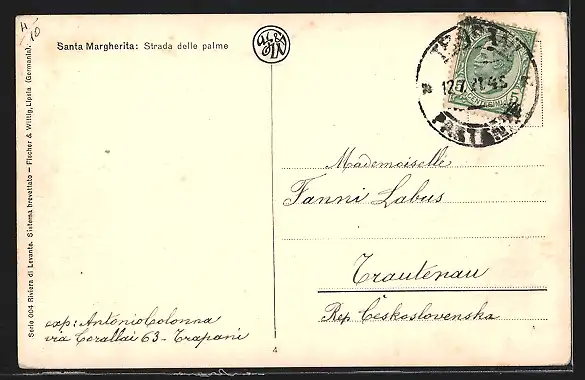 4/10
Santa Margherita: Strada delle palme
Mademoiselle
Fanni Labus
Trautenau
Rep. Československa
exp: Antonio Colonna
via Corallai 63 - Trapani
4
Serie 004 Riviera di Levante. Sistema brevettato — Fischer & Wittig, Lipsia (Germania).